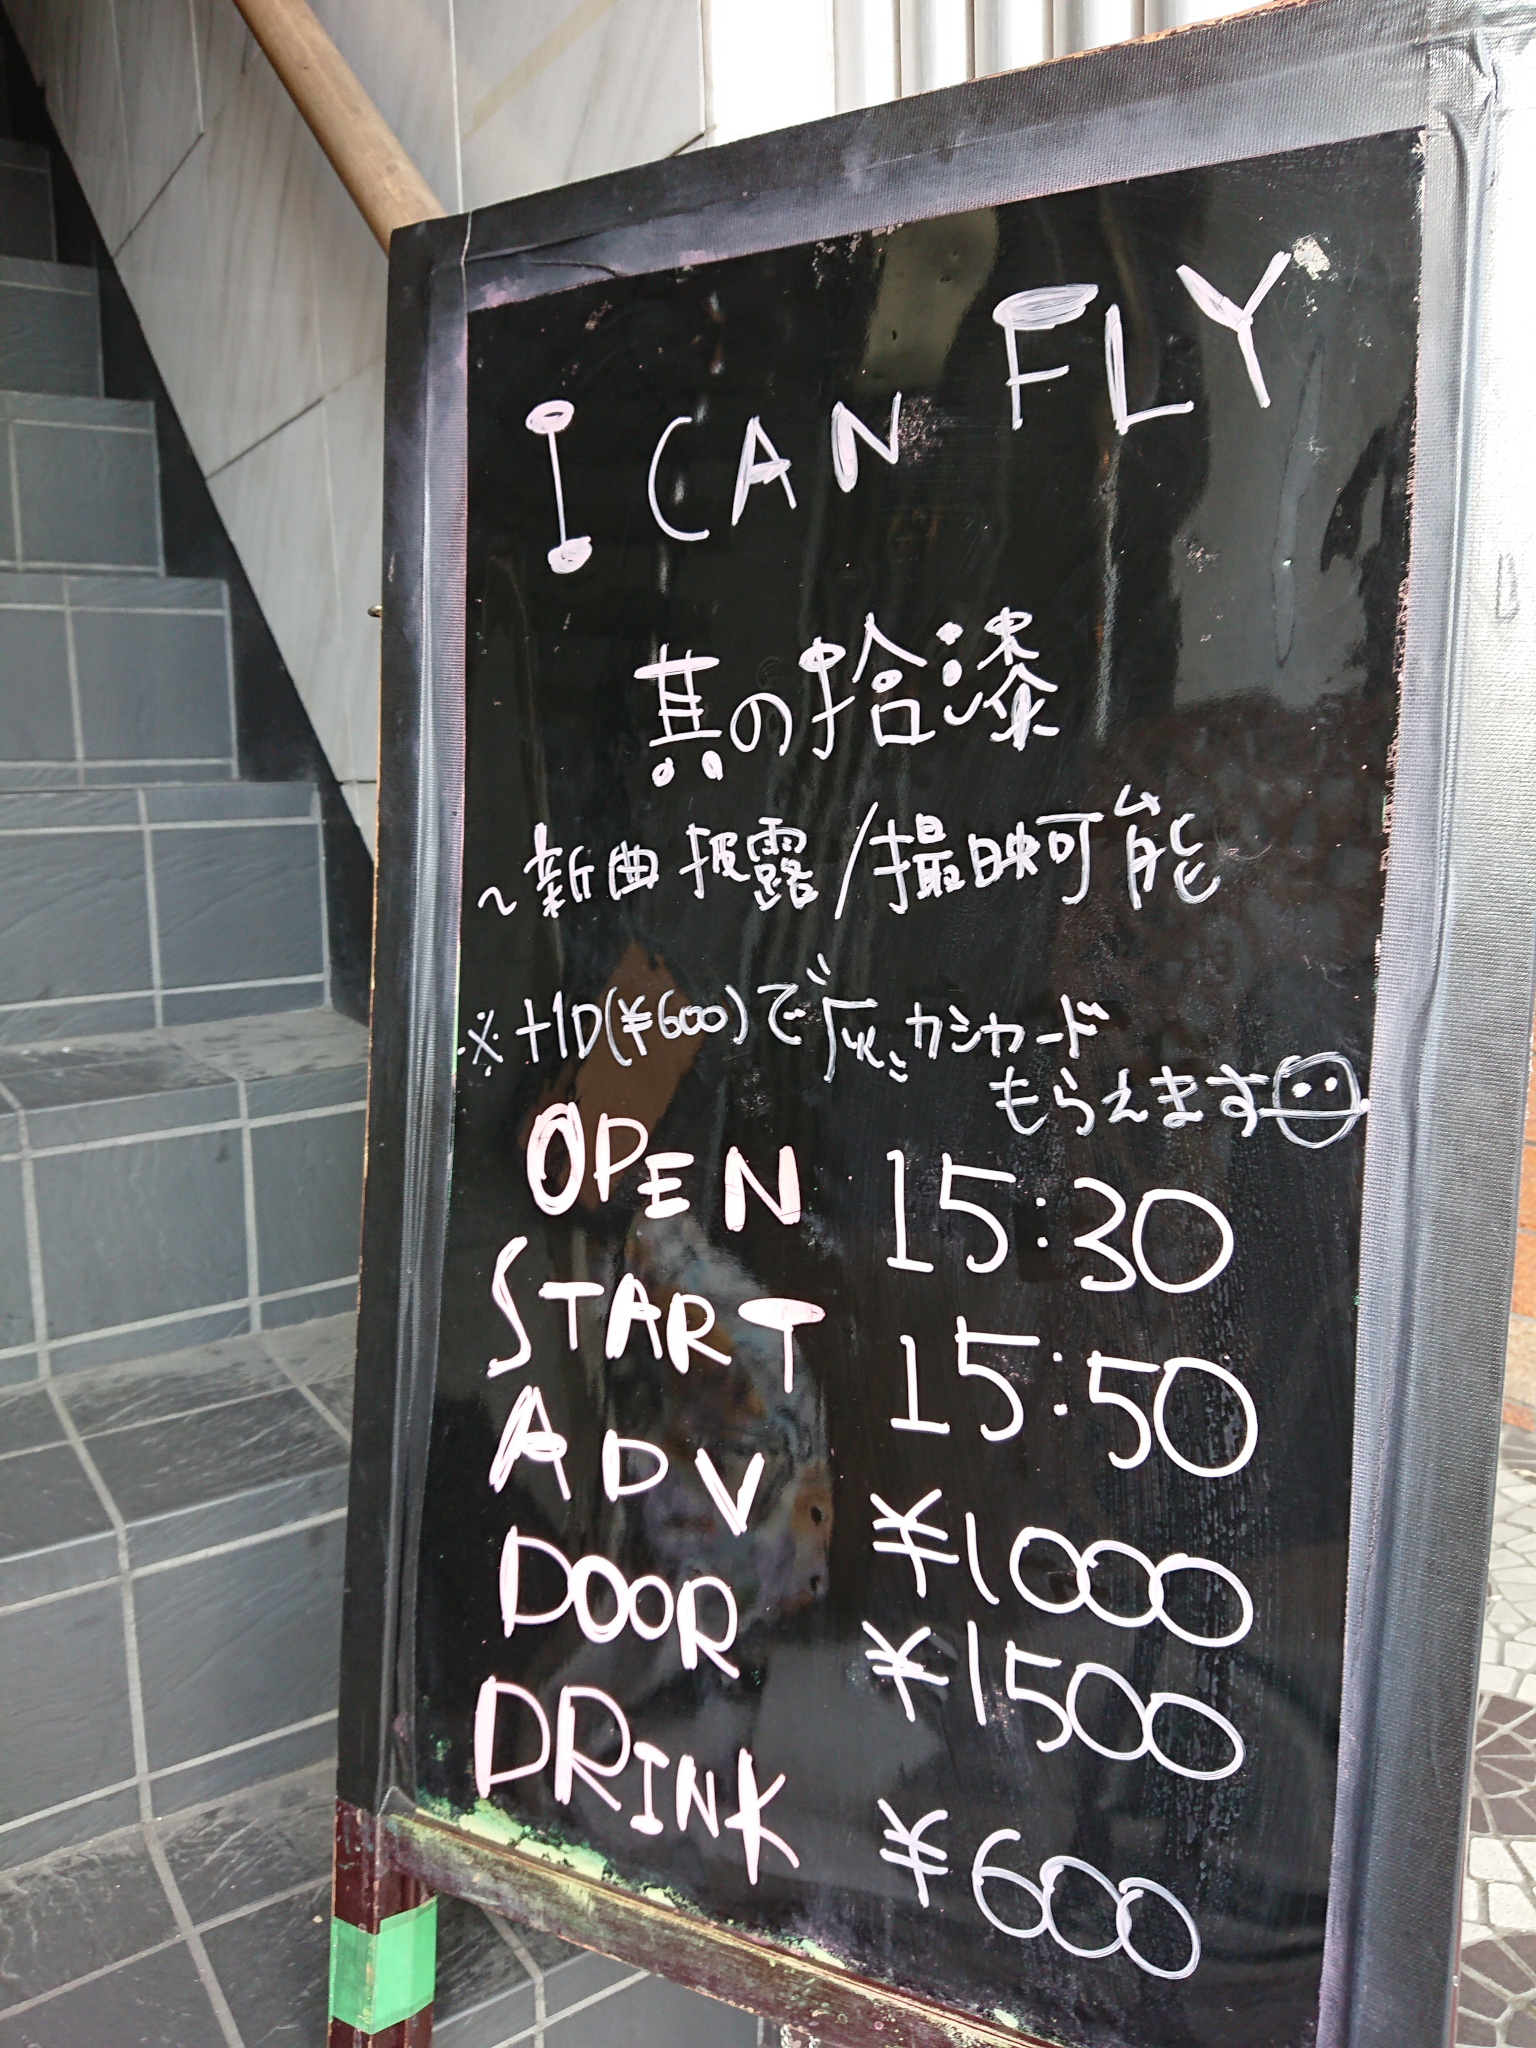 I CAN FLY
其の拾漆
~新曲披露/撮映可能
※+1D(¥600)で" カシカード
もらえます
OPEN 15:30
START 15:50
ADV ¥1000
DOOR ¥1500
DRINK ¥600